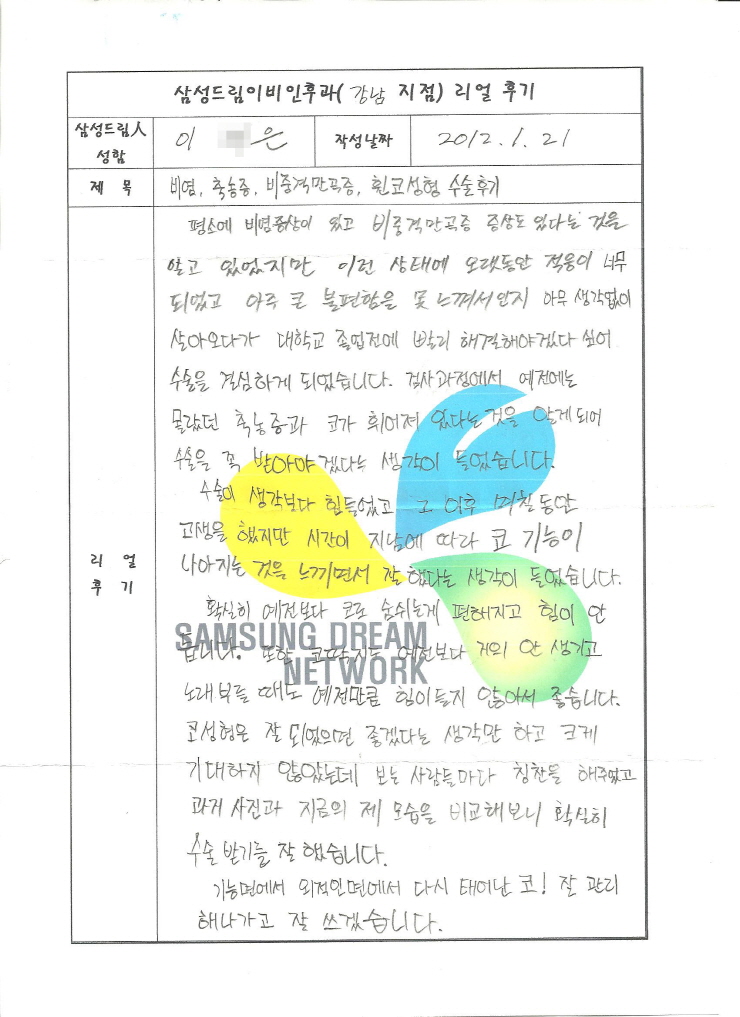 삼성드림이비인후과(강남 지점) 리얼 후기
삼성드림人 성함
이 은
작성날짜
2012. 1. 21
제 목
비염, 축농증, 비중격만곡증, 휜코성형 수술후기
리 얼 후 기
평소에 비염증상이 있고 비중격만곡증 증상도 있다는 것을
알고 있었지만 이런 상태에 오랫동안 적응이 너무
되었고 아주 큰 불편함을 못 느껴서인지 아무 생각없이
살아오다가 대학교 졸업전에 빨리 해결해야겠다 싶어
수술을 결심하게 되었습니다. 검사과정에서 예전에는
몰랐던 축농증과 코가 휘어져 있다는 것을 알게되어
수술은 꼭 받아야겠다는 생각이 들었습니다.
수술이 생각보다 힘들었고 그 이후 며칠동안
고생을 했지만 시간이 지남에 따라 코 기능이
나아지는 것을 느끼면서 잘 했다는 생각이 들었습니다.
확실히 예전보다 코로 숨쉬는게 편해지고 힘이 안
듭니다. 또한 코딱지도 예전보다 거의 안 생기고
SAMSUNG DREAM
NETWORK
노래부를 때도 예전만큼 힘이들지 않아서 좋습니다.
코성형은 잘 되었으면 좋겠다는 생각만 하고 크게
기대하지 않았는데 보는 사람들마다 칭찬을 해주었고
과거 사진과 지금의 제 모습을 비교해보니 확실히
수술 받기를 잘 했습니다.
기능면에서 외적인면에서 다시 태어난 코! 잘 관리
해나가고 잘 쓰겠습니다.